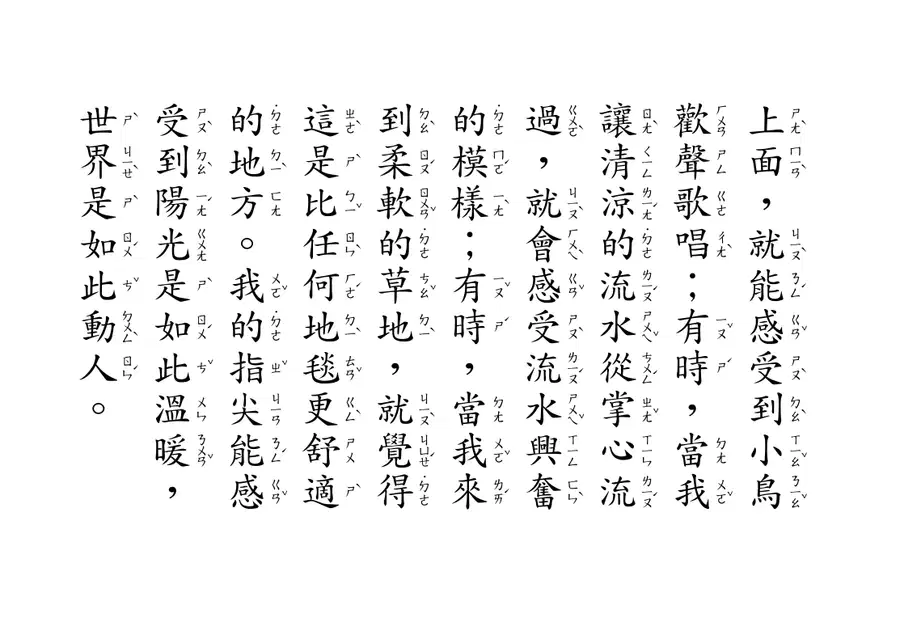 上面，就能感受到小鳥
歡聲歌唱；有時，當我
讓清涼的流水從掌心流
過，就會感受流水興奮
的模樣；有時，當我來
到柔軟的草地，就覺得
這是比任何地毯更舒適
的地方。我的指尖能感
受到陽光是如此溫暖，
世界是如此動人。